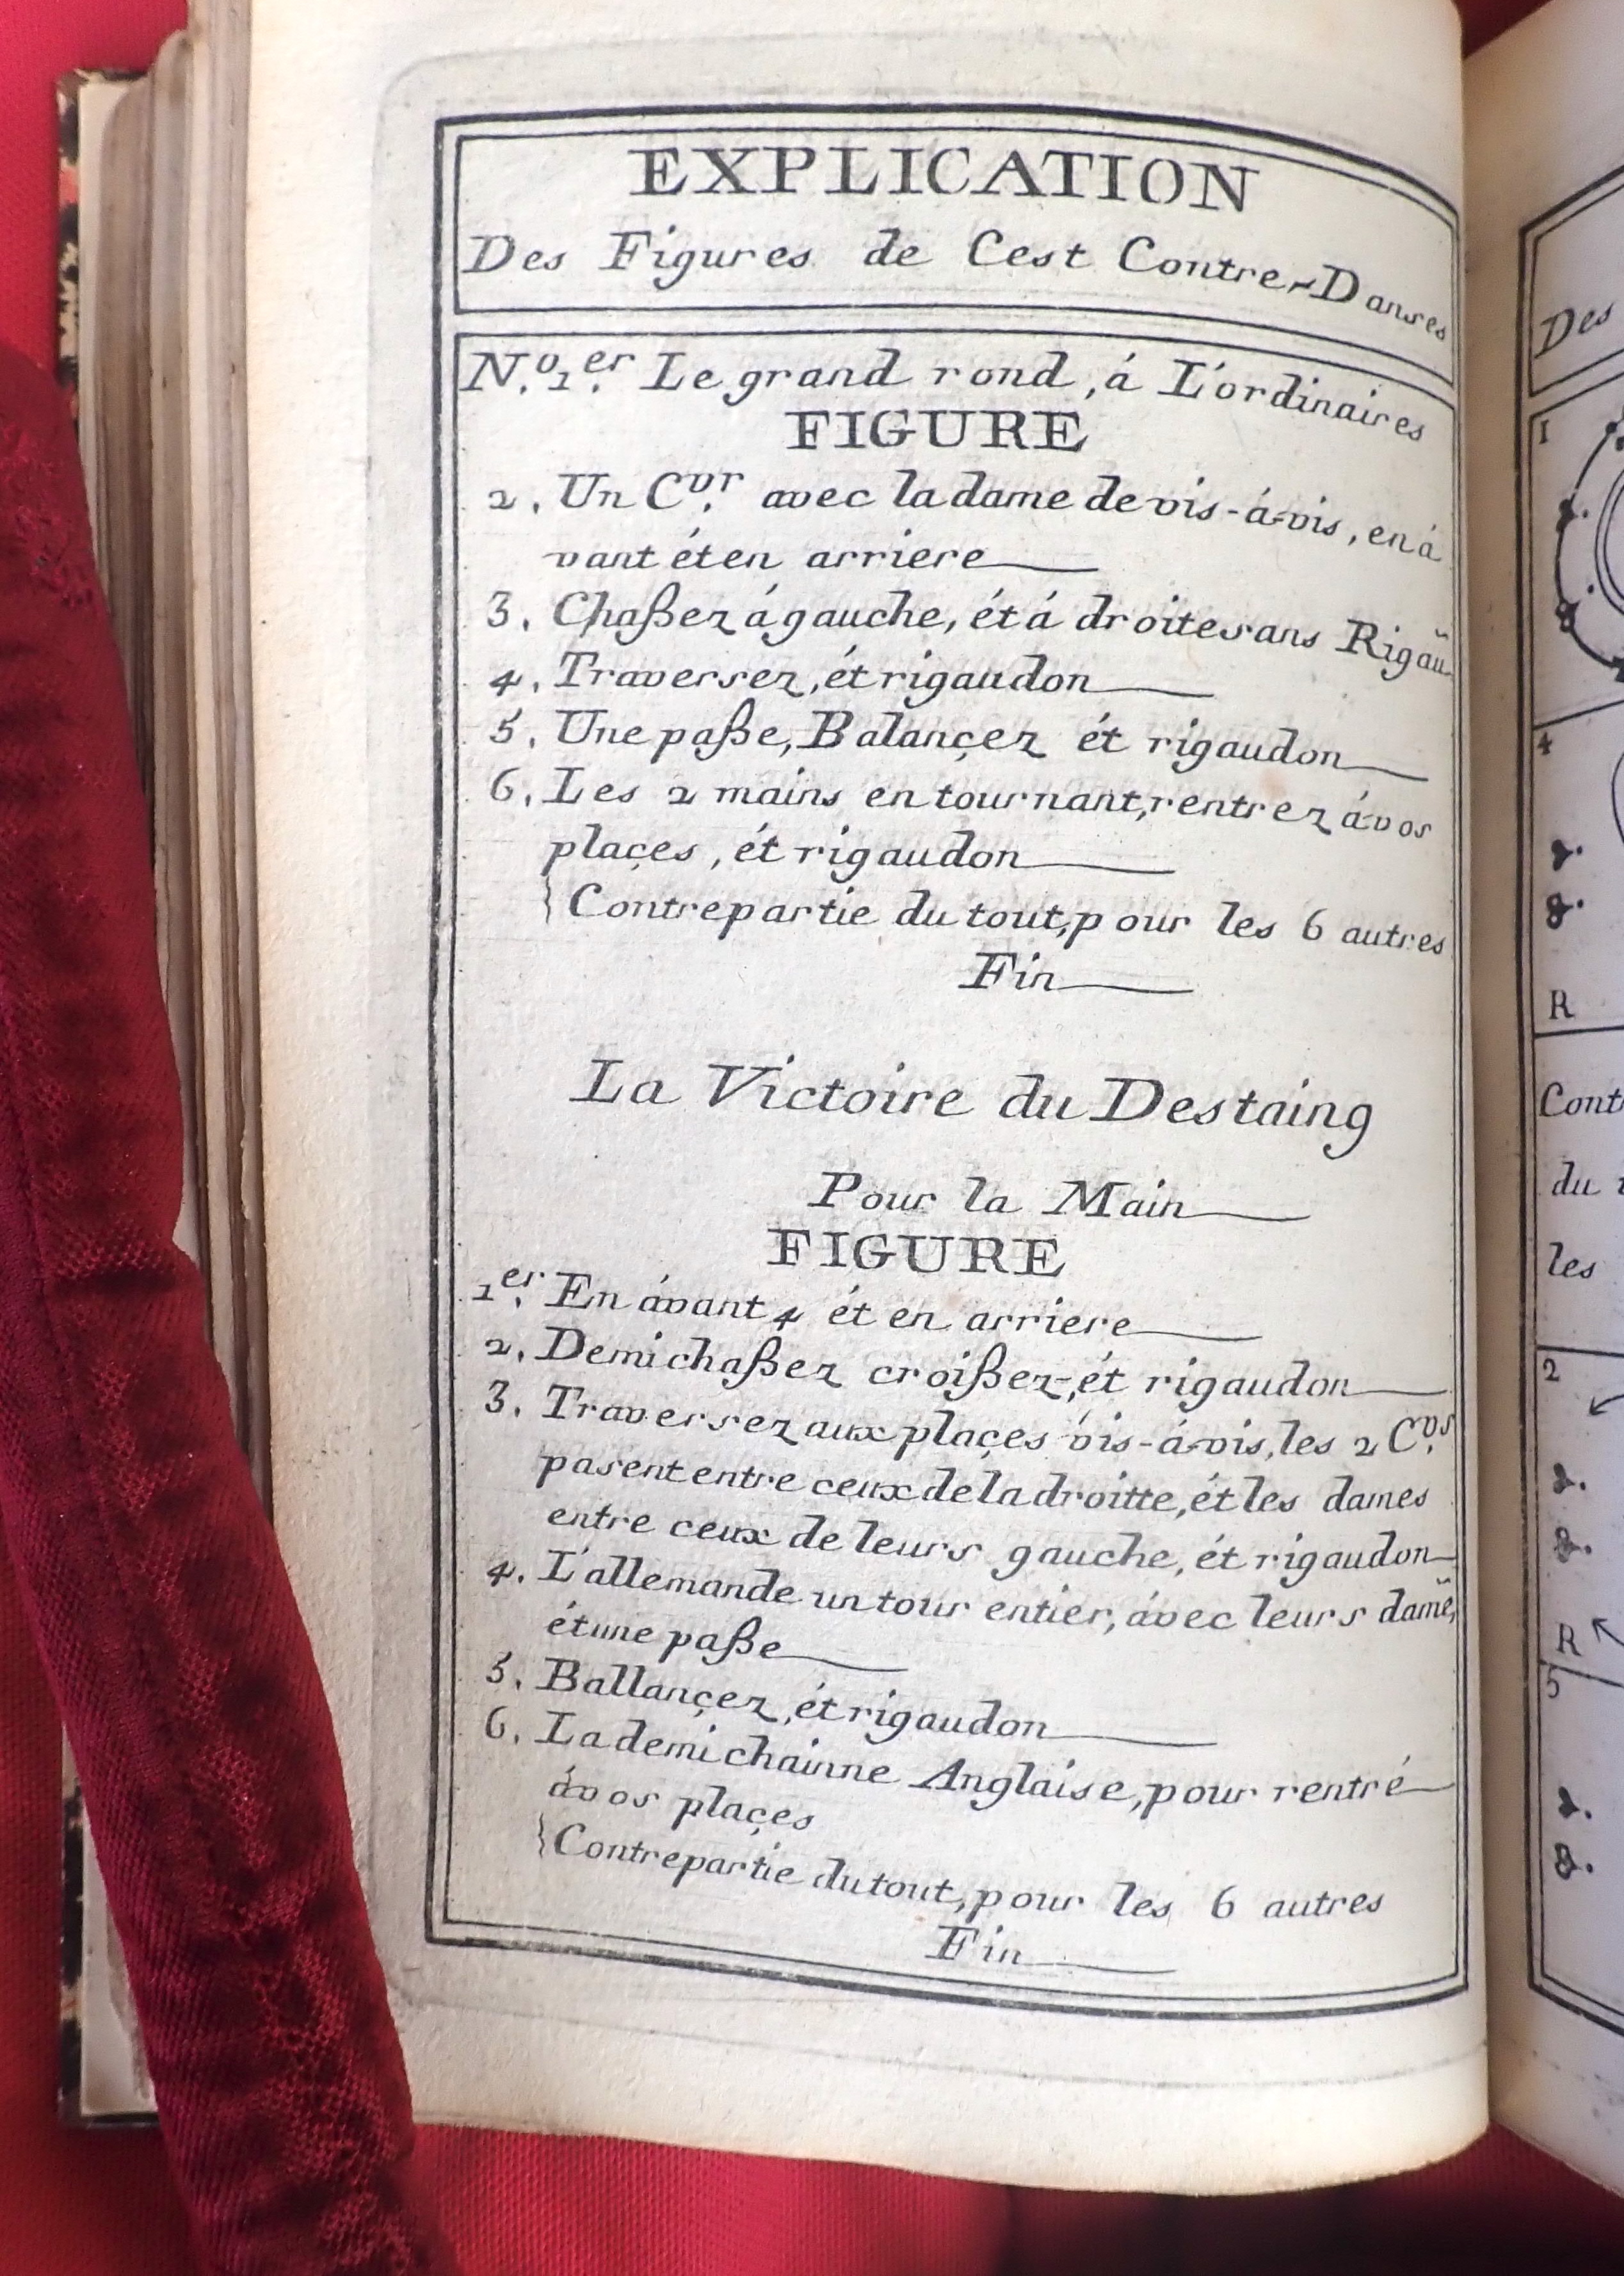 EXPLICATION
Des Figures de Cest Contre-Danses
N.º 1.er Le grand rond, á L'ordinaires
FIGURE
2. Un C.vr avec la dame de vis-á-vis, en á
vant ét en arriere
3. Chaßez á gauche, ét á droite sans Rigau
4. Traversez, ét rigaudon
5. Une paße, Balançez ét rigaudon
6. Les 2 mains en tournant, rentrez á vos
plaçes, ét rigaudon
{Contrepartie du tout, pour les 6 autres
Fin
La Victoire du Destaing
Pour la Main
FIGURE
1.er En ávant 4 ét en arriere
2. Demi chaßez croißez, ét rigaudon
3. Traversez aux plaçes vis-á-vis, les 2 C.vs
pasent entre ceux de la droitte, ét les dames
entre ceux de leurs gauche, ét rigaudon
4. L'allemande un tour entier, ávec leurs dame,
ét une paße
5. Ballançez, ét rigaudon
6. La demi chainne Anglaise, pour rentré
á vos plaçes
{Contrepartie du tout, pour les 6 autres
Fin
Des
1
4
R
Cont
du
les
2
R
5